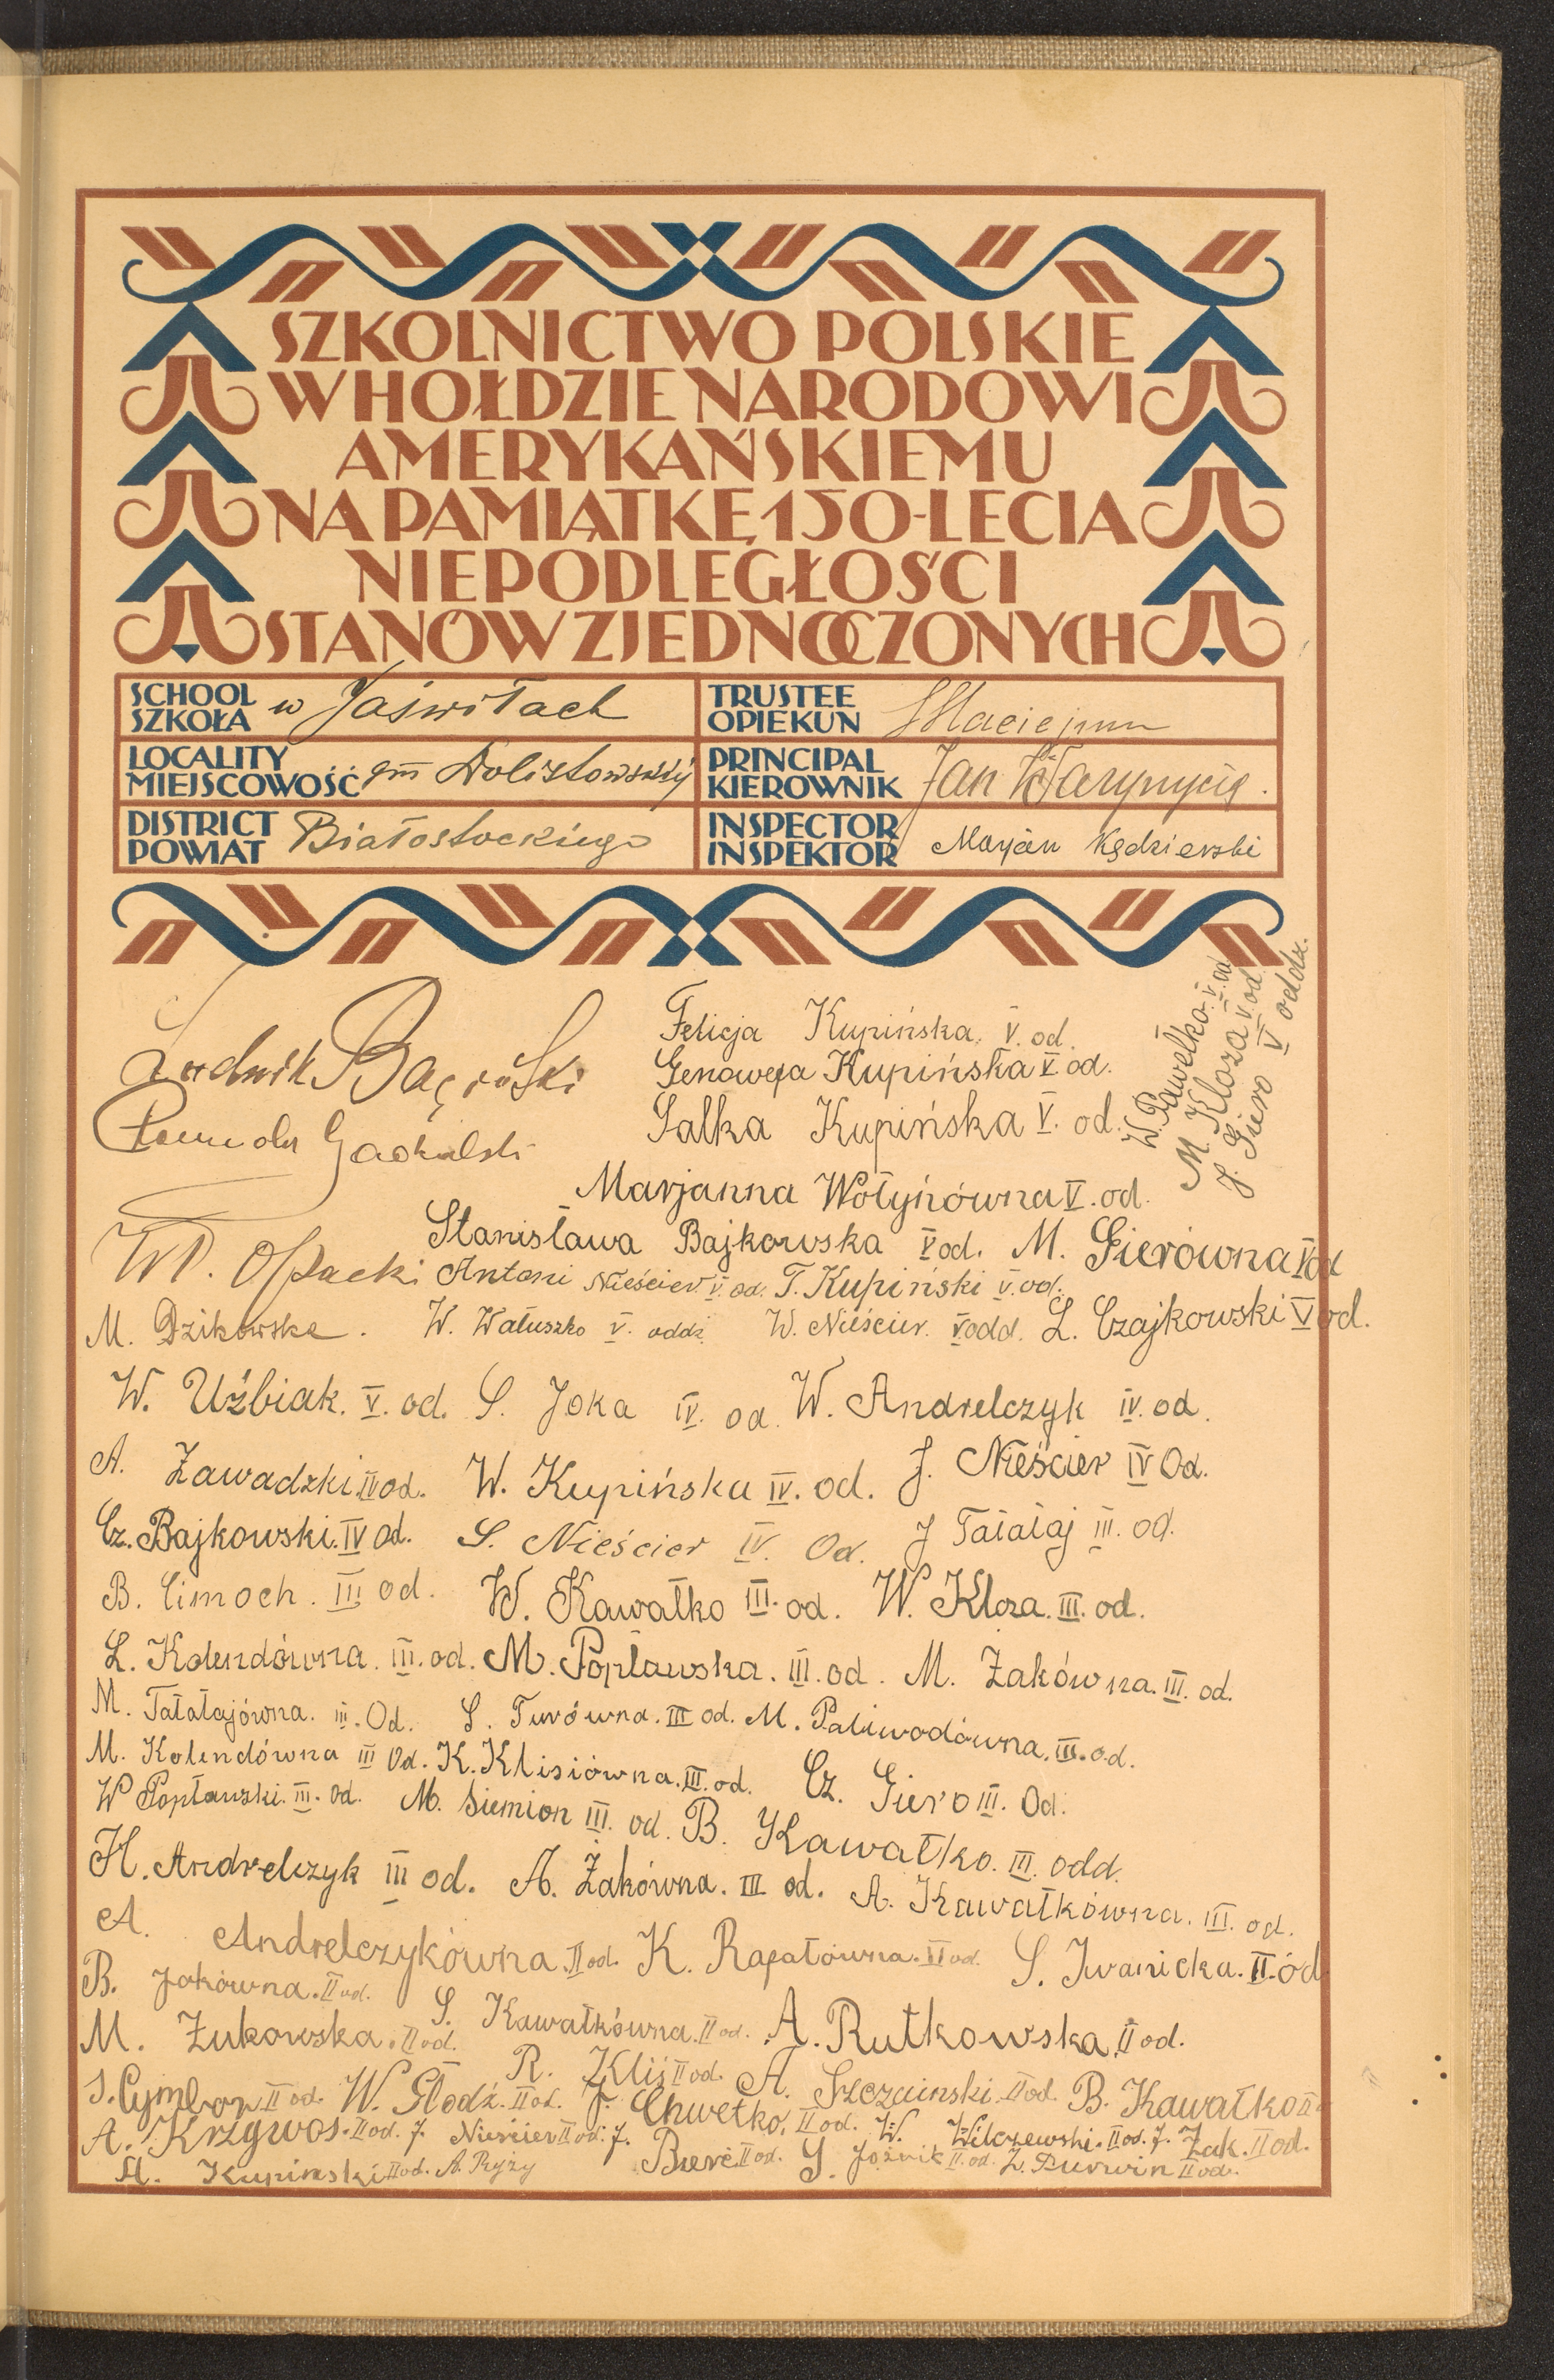 SZKOLNICTWO POLSKIE
W HOŁDZIE NARODOWI
AMERYKAŃSKIEMU
NA PAMIĄTKĘ 150-LECIA
NIEPODLEGŁOŚCI
STANÓW ZJEDNOCZONYCH
SCHOOL
SZKOŁA w Jaświłach
TRUSTEE
OPIEKUN
LOCALITY
MIEJSCOWOŚĆ gm Dolistowskiej
PRINCIPAL
KIEROWNIK Jan
DISTRICT
POWIAT Białostockiego
INSPECTOR
INSPEKTOR Marjan Kędzierski
Ludwik
Felicja Kupińska. V. od.
Genowefa Kupińska V od.
Salka Kupińska V. od.
W. Pawełko. V. od
M. Kloza V od
J. Giero V oddz.
Marjanna Wołyńówna V. od.
Stanisława Bajkowska V od. M. Gierówna V od
Wł. Opacki Antoni Nieścier. V. od. T. Kupiński V. od.
M. Dzikowska. W. Wałuszko V. oddz. W. Nieścier. V odd. L. Czajkowski V od.
W. Uźbiak. V. od. S. Joka IV. od. W. Andrelczyk IV. od.
A. Zawadzki. IV od. W. Kupińska IV. od. J. Nieścier IV Od.
Cz. Bajkowski. IV od. S. Nieścier IV. Od. J Tałałaj III. od.
B. Cimoch. III od. W. Kawałko III. od. W. Kloza. III. od.
L. Kolendówna. III. od. M. Popławska. III. od. M. Żakówna. III. od.
M. Tałałajówna. III. Od. S. Turówna. III od. M. Paliwodówna. III. od.
M. Kolendówna III Od. K. Klisiówna. III. od. Cz. Giero III. Od.
W Popławski. III. od. M. Siemion III. od. B. Kawałko. III. odd.
H. Andrelczyk III od. A. Żakówna. III od. A. Kawałkówna. III. od.
A. Andrelczykówna. II od. K. Rapałówna. II od. S. Iwanicka. II. od
B. Jokówna. II od. S. Kawałkówna. II od. A. Rutkowska. II od.
M. Żukowska. II od. R. Kliś II od. A. Szczesinski. II od. B. Kawałko II
S. Cymbor II od. W. Słodź. II od. J. Chwećko. II od. W. Wilczewski. II od. J. Żak. II od.
A. Krzywos. II od. J. Nieścier II od. J. Bierć II od. S. Jóźwik II. od. Z. Purwin II od.
A. Kupinski II od. A. Ryży